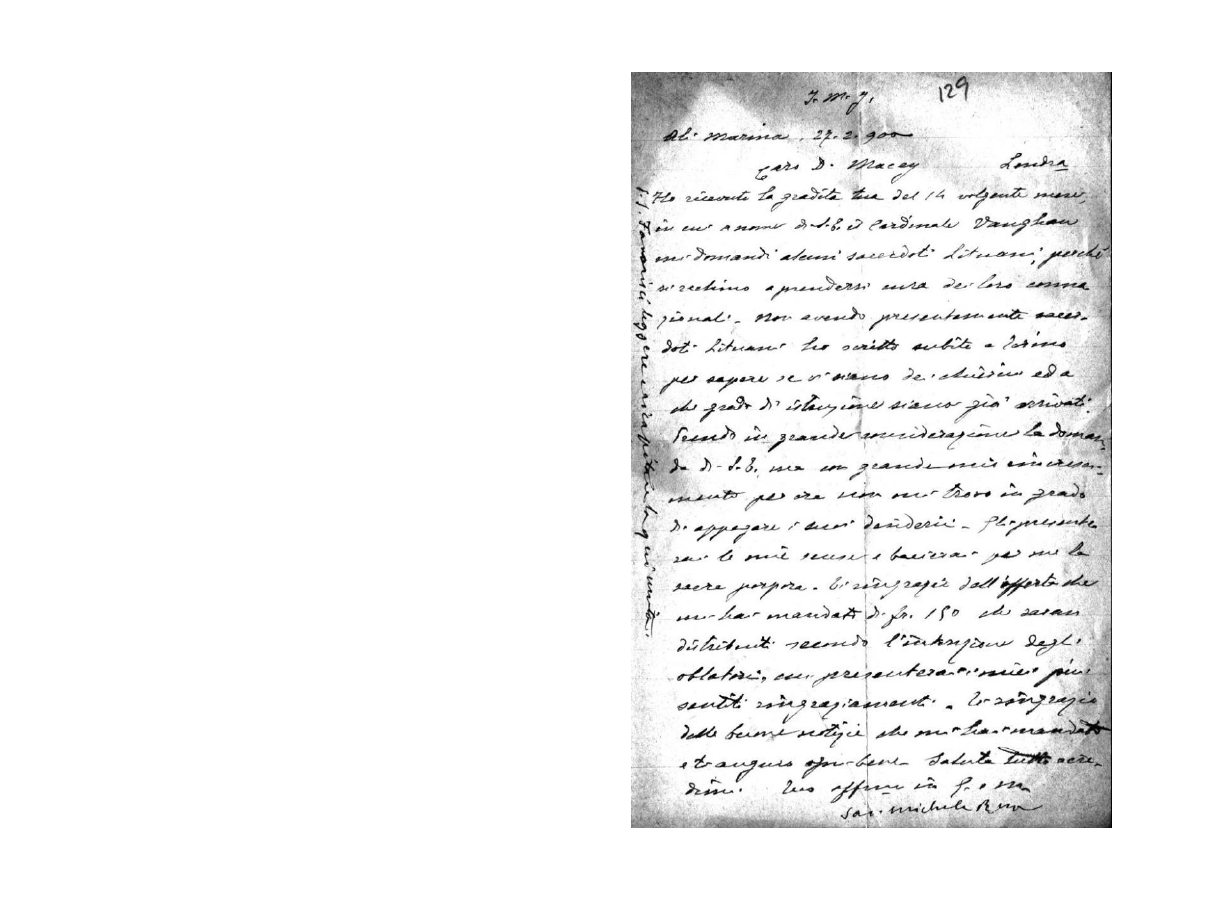 J. M. J.
129
Alì Marina, 27.2.900
Caro D. Macey Londra
Ho ricevuto la gradita tua del 14 volgente mese,
in cui a nome di S. E. il Cardinale Vaughan
mi domandi alcuni sacerdoti Lituani, perchè
si rechino a prendersi cura dei loro conna
zionali. Non avendo presentemente sacer-
doti Lituani ho scritto subito a Torino
per sapere se vi siano dei chierici ed a
che grado di istruzione siano già arrivati.
Tendo in grande considerazione la doman
da di S. E. ma con grande mio rincresci-
mento per ora non mi trovo in grado
di appagare i suoi desiderii. Gli presente
rai le mie scuse e bacierai per me la
sacra porpora. Ti ringrazio dell'offerta che
mi hai mandato di fr. 150 che saran
distribuiti secondo l'intenzione degli
oblatori, cui presenterai i miei più
sentiti ringraziamenti. Ti ringrazio
delle buone notizie che mi hai mandato
e ti auguro ogni bene. Saluta
Tuo aff.mo in G. e M.
Sac. Michele Rua